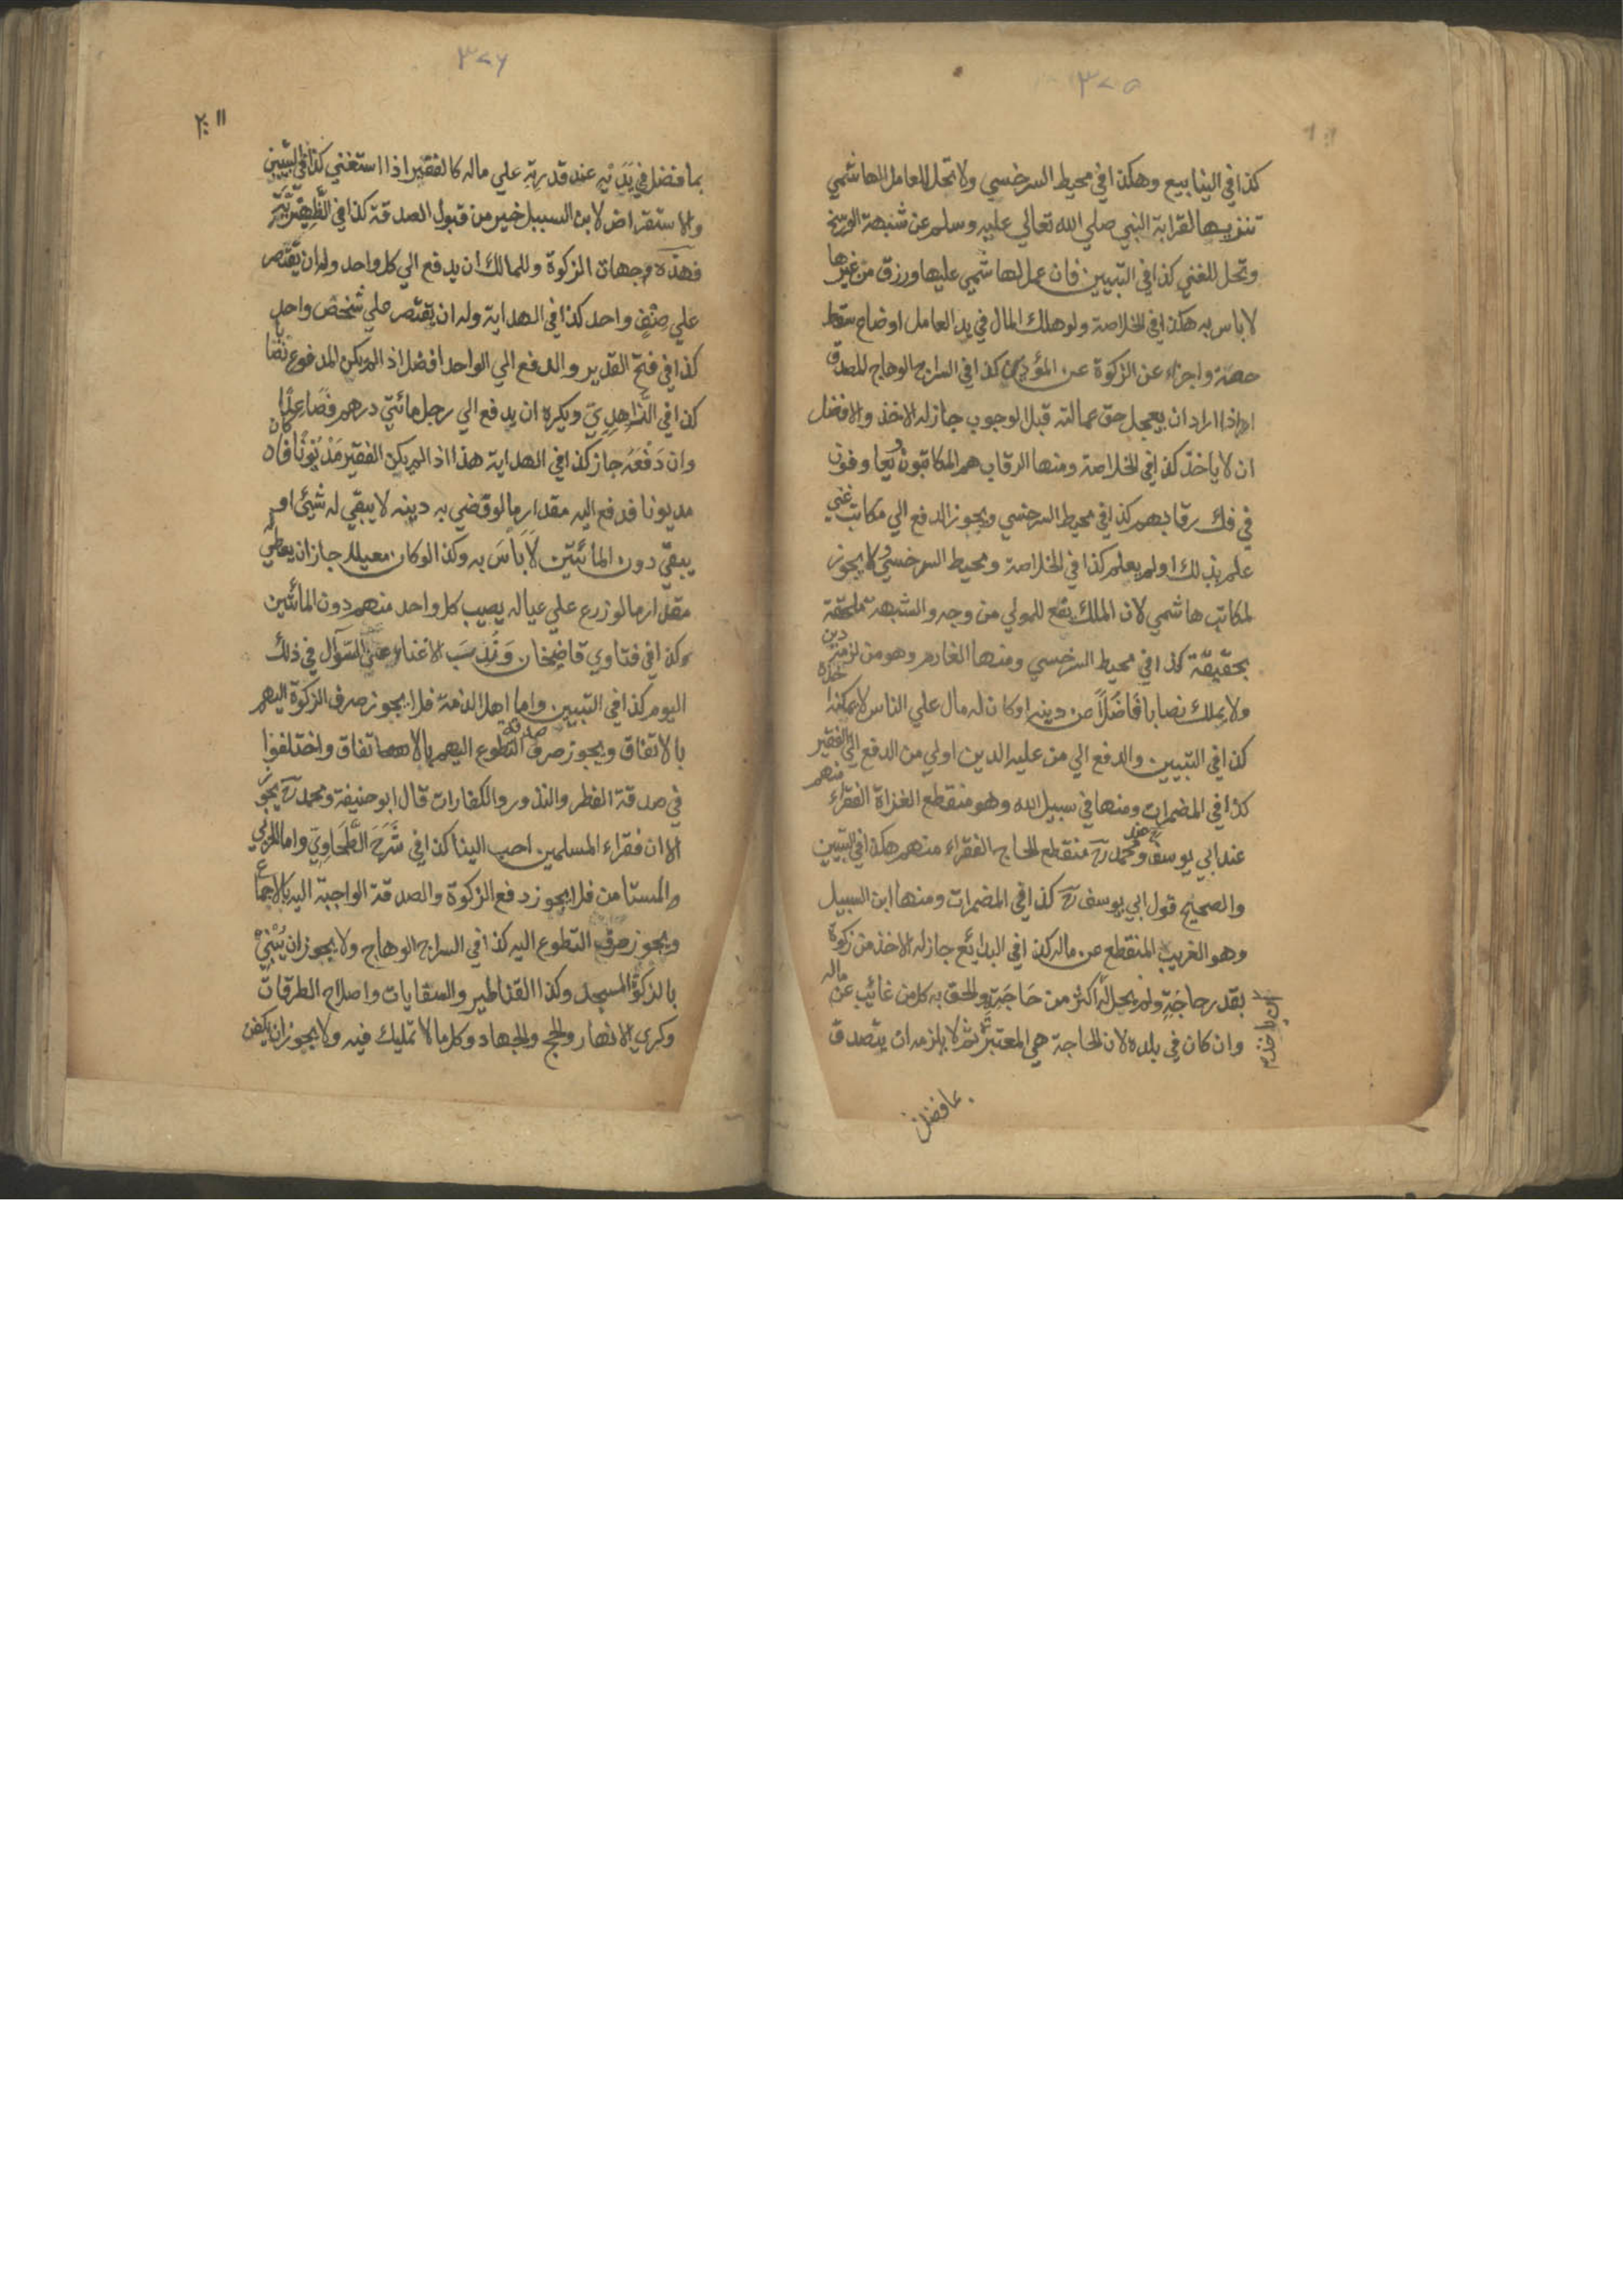 ٣٧٥
كذا في الينابيع وهكذا في محيط السرخسي ولا تحل للعامل الهاشمي
تنزيها لقرابة النبي صلي الله تعالي عليه وسلم عن شبهة الوسخ
وتحل للغني كذا في التبيين فان عمل الهاشمي عليها ورزق من غيرها
لا باس به هكذا في الخلاصة ولو هلك المال في يد العامل او ضاع سقط
حصته واجزاء عن الزكوة عن المؤدي كذا في السراج الوهاج المصدق
اذا اراد ان يعجل حق عمالته قبل الوجوب جاز له الاخذ والافضل
ان لا ياخذ كذا في الخلاصة ومنها الرقاب هم المكاتبون ويعاونون
في فك رقابهم كذا في محيط السرخسي ويجوز الدفع الي مكاتب غني
علم بذلك او لم يعلم كذا في الخلاصة ومحيط السرخسي ولا يجوز
لمكاتب هاشمي لان الملك يقع للمولي من وجه والشبهة ملحقة
بحقيقة كذا في محيط السرخسي ومنها الغارم وهو من لزمه دين
ولا يملك نصابا فاضلا من دينه او كان له مال علي الناس لا يمكنه اخذه
كذا في التبيين والدفع الي من عليه الدين اولي من الدفع الي الفقير
كذا في المضمرات ومنها في سبيل الله وهو منقطع الغزاة الفقراء منهم
عند ابي يوسف رح وعند محمد رح منقطع الحاج الفقراء منهم هكذا في التبيين
والصحيح قول ابي يوسف رح كذا في المضمرات ومنها ابن السبيل
وهو الغريب المنقطع عن ماله كذا في البدائع جاز له الاخذ من زكوة
بقدر حاجته ولم يحل له اكثر من حاجته والحق به كل من غائب عن ماله
وان كان في بلده لان الحاجة هي المعتبرة ثم لا يلزمه ان يتصدق
بما فضل
٣٧٦
بما فضل في يده عند قدرته علي ماله كالفقير اذا استغني كذا في التبيين
والاستقراض لابن السبيل خير من قبول الصدقة كذا في الظهيرية
فهذه وجهات الزكوة وللمالك ان يدفع الي كل واحد وله ان يقتصر
علي صنف واحد كذا في الهداية وله ان يقتصر علي شخص واحد
كذا في فتح القدير والدفع الي الواحد افضل اذ الم يكن المدفوع نصابا
كذا في الزاهدي ويكره ان يدفع الي رجل مائتي درهم فصاعدا
وان دفعه جاز كذا في الهداية هذا اذ الم يكن الفقير مديونا فان كان
مديونا فدفع اليه مقدار ما لو قضي به دينه لا يبقي له شيئ او
يبقي دون المائتين لا باس به وكذا لو كان معيلا جاز ان يعطي له
مقدار ما لو زرع علي عياله يصيب كل واحد منهم دون المائتين
كذا في فتاوي قاضيخان وندب الاغناء عن السوال في ذلك
اليوم كذا في التبيين واما اهل الذمة فلا يجوز صرف الزكوة اليهم
بالاتفاق ويجوز صرف صدقة التطوع اليهم بالاتفاق واختلفوا
في صدقة الفطر والنذور والكفارات قال ابو حنيفة ومحمد رح يجوز
الا ان فقراء المسلمين احب الينا كذا في شرح الطحاوي واما الحربي
والمستامن فلا يجوز دفع الزكوة والصدقة الواجبة اليه بالاجماع
ويجوز صرف التطوع اليه كذا في السراج الوهاج ولا يجوز ان يبني
بالزكوة المسجد وكذا القناطير والسقايات واصلاح الطرقات
وكري الانهار والحج والجهاد وكل ما لا تمليك فيه ولا يجوز ان يكفن